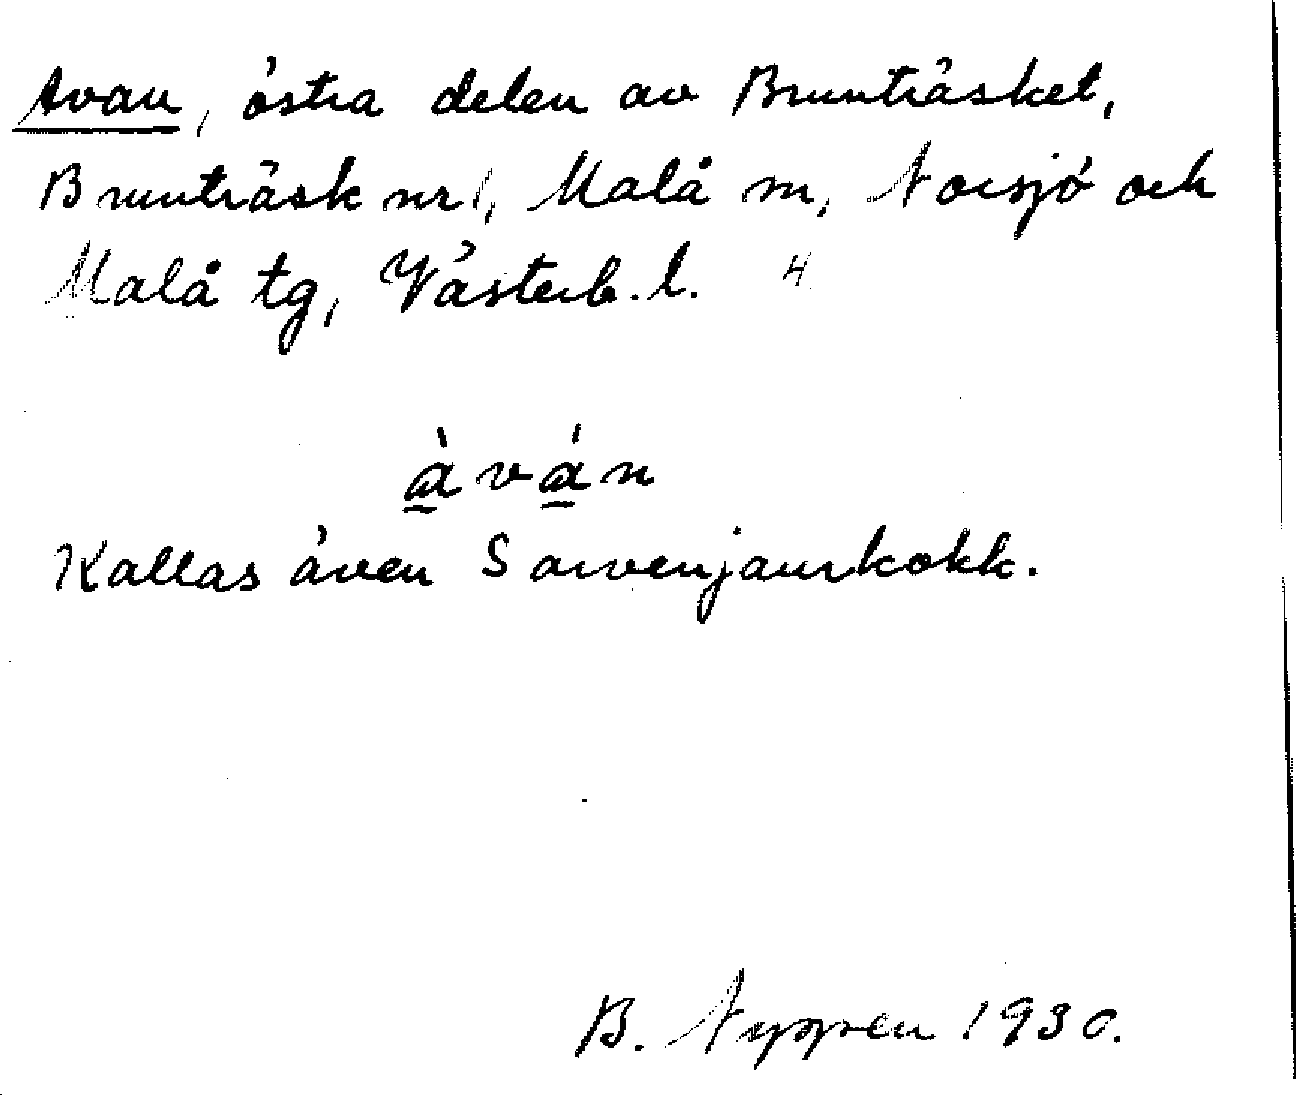 Avan, östra delen av Brunträsket,
Brunträsk nr 1, Malå sn, Norsjö och
Malå tg, Västerb. l. 4
àván
Kallas även Sarvenjaurkokk.
B. Nyppen 1930.